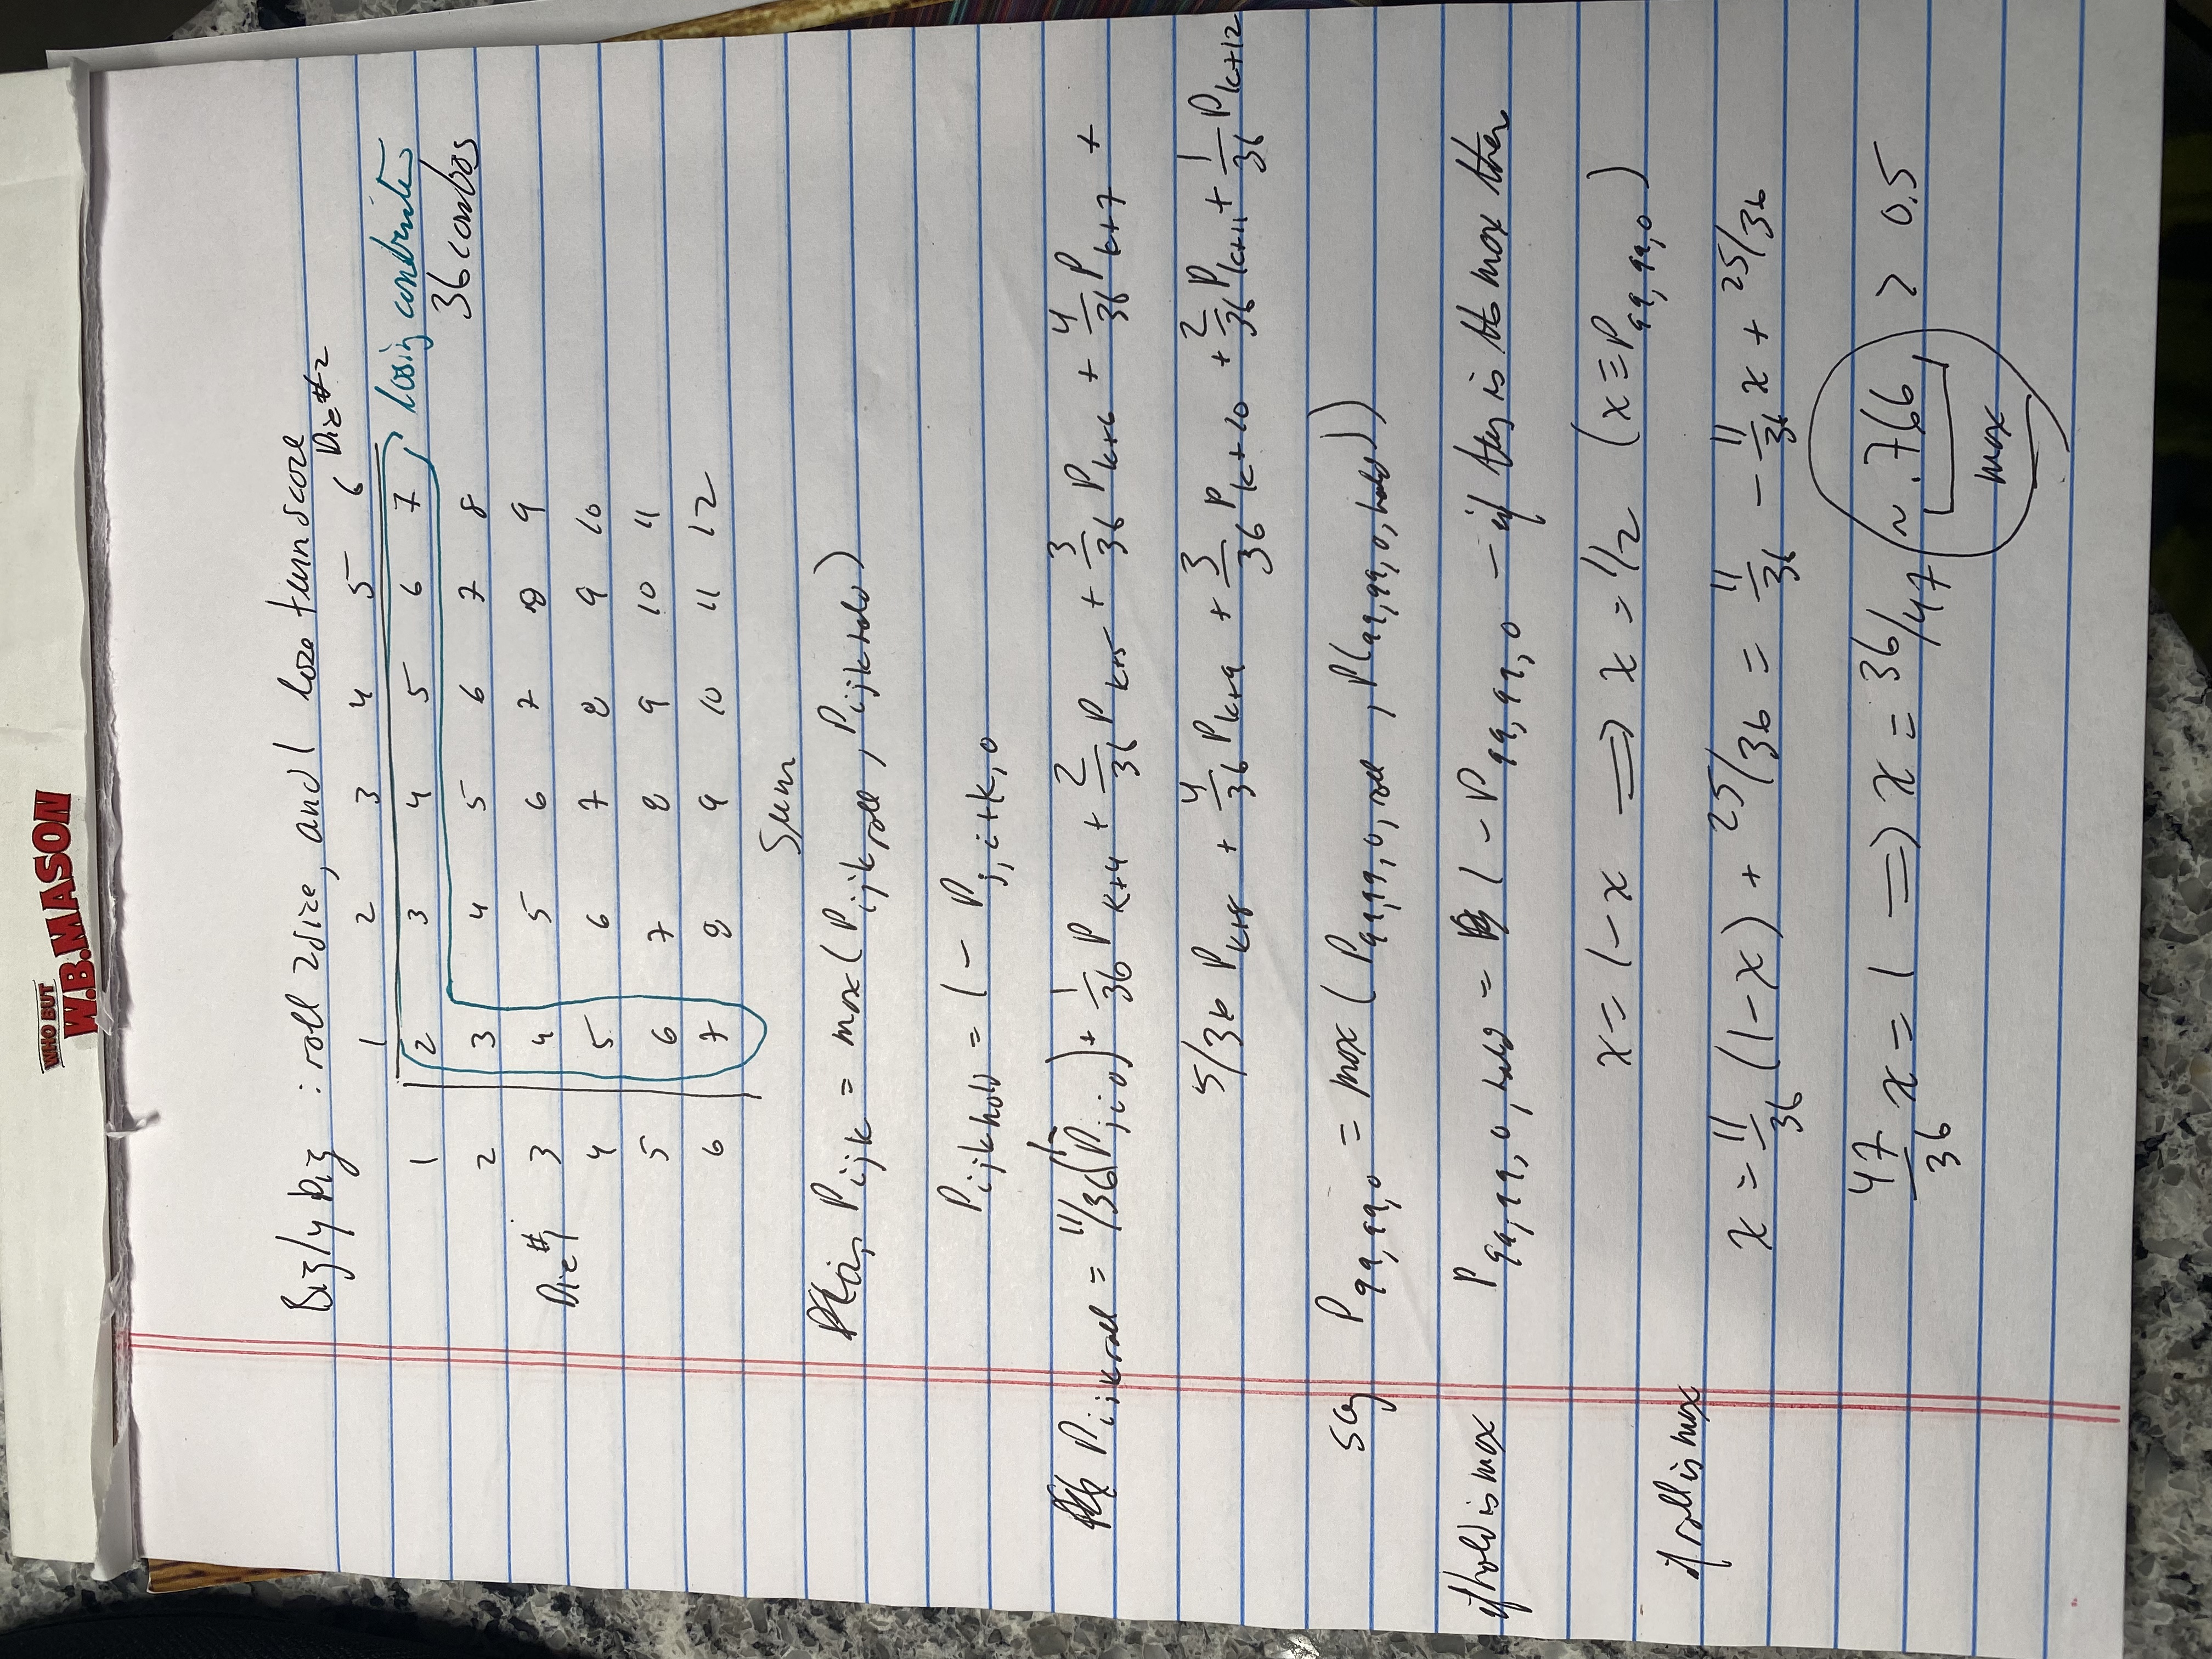 WHO BUT
W.B.MASON
Bigly Pig : roll 2 dice, and 1 lose turn score
Die #2
1 2 3 4 5 6
1 2 3 4 5 6 7
losing
36 combos
2 3 4 5 6 7 8
Die #1
3 4 5 6 7 8 9
4 5 6 7 8 9 10
5 6 7 8 9 10 11
6 7 8 9 10 11 12
Sum
P_ijk = max(P_ijk roll, P_ijk hold)
P_ijk hold = 1 - P_j,i+k,0
P_ijk roll = 11/36(1-P_ji0) + 1/36 P_k+4 + 2/36 P_k+5 + 3/36 P_k+6 + 4/36 P_k+7 +
5/36 P_k+8 + 4/36 P_k+9 + 3/36 P_k+10 + 2/36 P_k+11 + 1/36 P_k+12
say P_99,99,0 = max(P_99,99,0,roll, P(99,99,0,hold))
if hold is max P_99,99,0,hold = 1 - P_99,99,0 - if this is the max then
x = 1-x ⟹ x = 1/2 (x ≡ P_99,99,0)
if roll is max
x = 11/36 (1-x) + 25/36 = 11/36 - 11/36 x + 25/36
47/36 x = 1 ⟹ x = 36/47 ~ .766 > 0.5
max